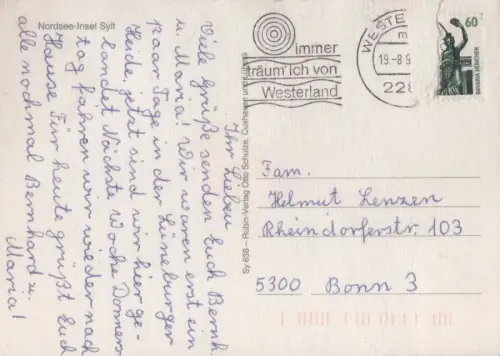 Nordsee-Insel Sylt
Ihr Lieben
Viele Grüße senden Euch Bernh
u. Maria! Wir waren erst ein
paar Tage in der Lüneburger
Heide, jetzt sind wir hier ge-
landet. Nächste Woche Donners
tag fahren wir wieder nach
Hause. Für heute grüßt Euch
alle nochmal Bernhard u.
Maria!
Sy 638 – Rubin-Verlag Otto Schulze, Cuxhaven
immer
träum'ich von
Westerland
WESTE
19.-8.9
228
60
Fam.
Helmut Lenzen
Rheindorferstr. 103
5300 Bonn 3